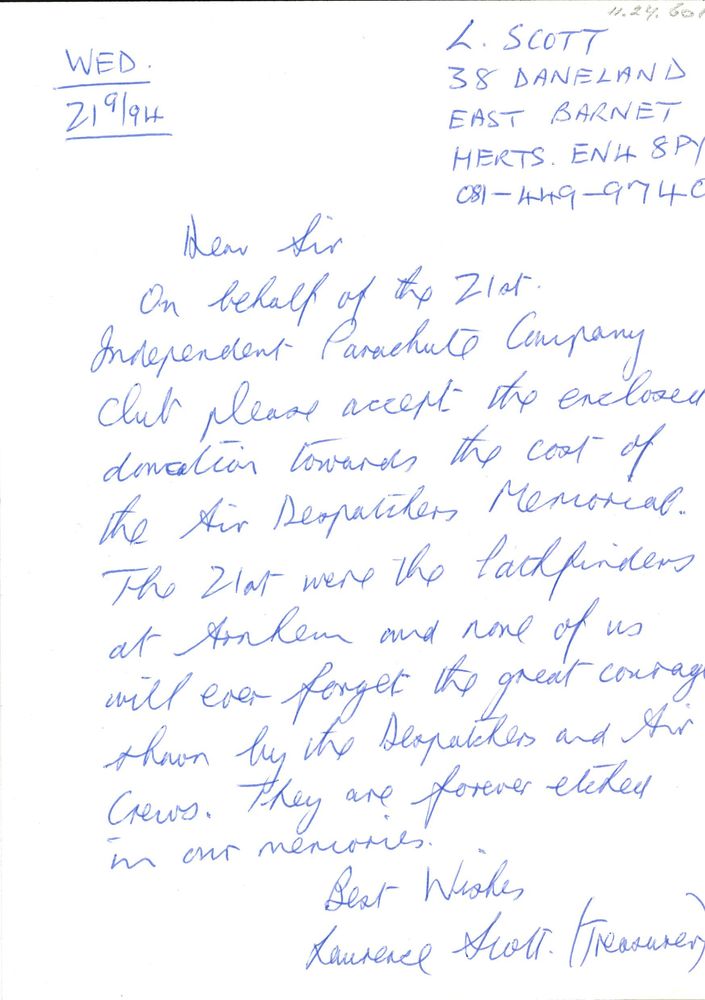 11.24.601
L. SCOTT
WED.
38 DANELAND
21 9/94
EAST BARNET
HERTS. EN4 8PY
081-449-9740
Dear Sir
On behalf of the 21st.
Independent Parachute Company
Club please accept the enclosed
donation towards the cost of
the Air Despatchers Memorial.
The 21st were the Pathfinders
at Arnhem and none of us
will ever forget the great courage
shown by the Despatchers and Air
Crews. They are forever etched
in our memories.
Best Wishes
Laurence Scott. (Treasurer)